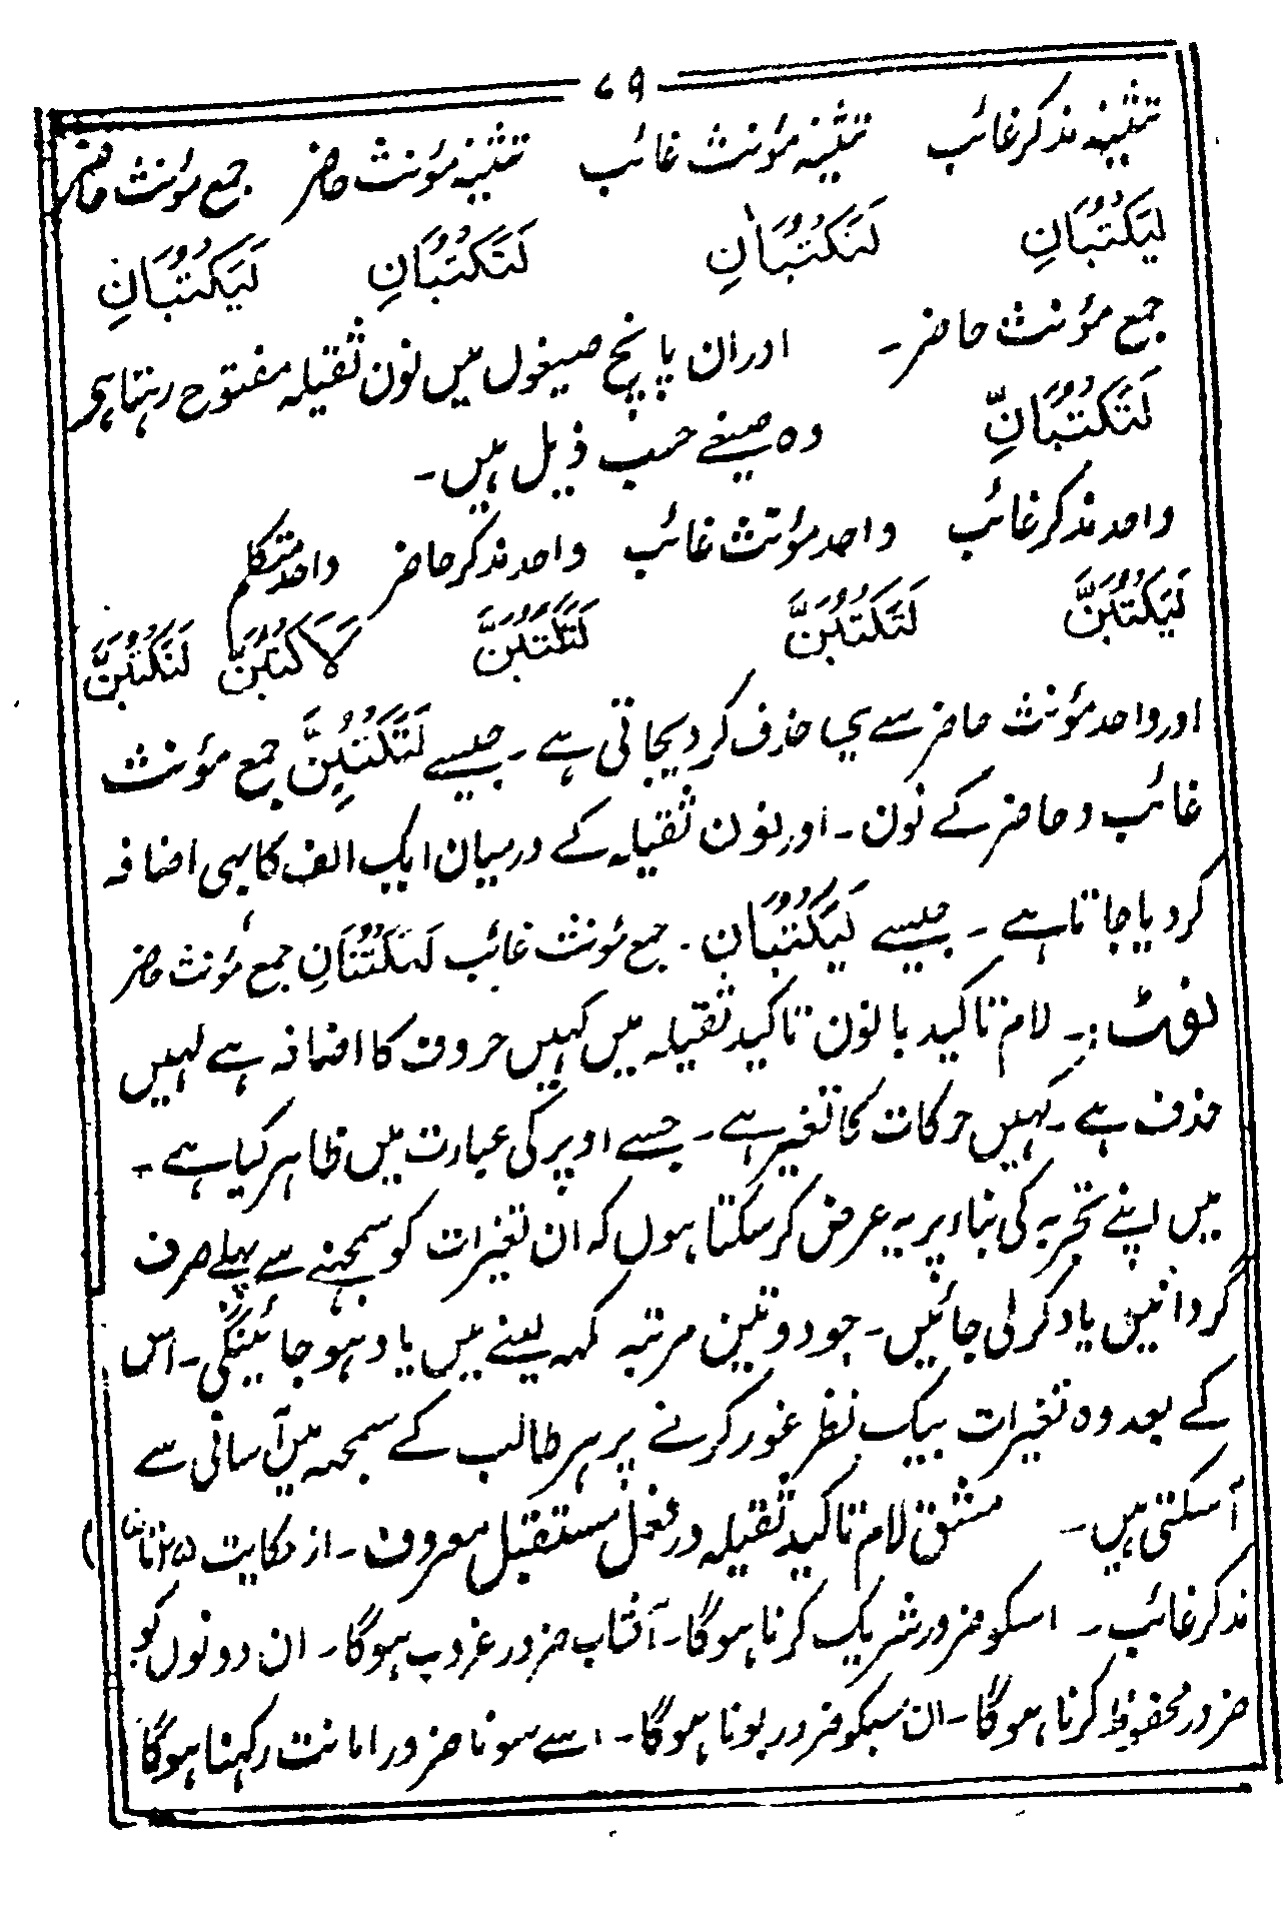 ۷۹
تثنیہ مذکر غائب تثنیہ مؤنث غائب تثنیہ مؤنث حاضر جمع مؤنث حاضر
لَیَکْتُبَانِ لَتَکْتُبَانِ لَتَکْتُبَانِ لَیَکْتُبَانِ
جمع مؤنث حاضر۔ اور ان پانچ صیغوں میں نون ثقیلہ مفتوح رہتا ہے
لَتَکْتُبَانِّ وہ صیغے حسب ذیل ہیں۔
واحد مذکر غائب واحد مؤنث غائب واحد مذکر حاضر واحد متکلم
لَیَکْتُبَنَّ لَتَکْتُبَنَّ لَتَکْتُبَنَّ لَاَکْتُبَنَّ لَنَکْتُبَنَّ
اور واحد مؤنث حاضر سے ی حذف کر دیجاتی ہے۔ جیسے لَتَکْتُبِنَّ جمع مؤنث
غائب و حاضر کے نون۔ اور نون ثقیلہ کے درمیان ایک الف کا بہی اضافہ
کر دیا جاتا ہے۔ جیسے لَیَکْتُبْنَانِ۔ جمع مؤنث غائب لَتَکْتُبْنَانِ جمع مؤنث حاضر
نوٹ:۔ لام تاکید با نون تاکید ثقیلہ میں کہیں حروف کا اضافہ ہے کہیں
حذف ہے۔ کہیں حرکات کا تغیر ہے۔ جسے اوپر کی عبارت میں ظاہر کیا ہے۔
میں اپنے تجربہ کی بناء پر یہ عرض کر سکتا ہوں کہ ان تغیرات کو سمجہنے سے پہلے صرف
گردانیں یاد کر لی جائیں۔ جو دو تین مرتبہ کہہ لینے میں یاد ہو جائینگی۔ اس
کے بعد وہ تغیرات بیک نظر غور کرنے پر ہر طالب کے سمجہہ میں آسانی سے
آسکتی ہیں۔ مشق لام تاکید ثقیلہ در فعل مستقبل معروف۔ از حکایت ۲۵ تا )
مذکر غائب۔ اسکو ضرور شریک کرنا ہوگا۔ آفتاب ضرور غروب ہوگا۔ ان دونوں کو
ضرور محفوظ کرنا ہوگا۔ ان سبکو ضرور بونا ہوگا۔ اسے سونا ضرور امانت رکہنا ہوگا